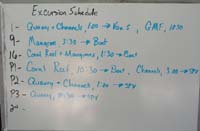 Excursion Schedule
1 - Quarry + Channels, 1:00 → Rm 5, GMF, 10:30
9 - Mangrove, 3:30 → Boat
16 - Coral Reef + Mangroves, 1:30 → Boat
P1 - Coral Reef, 10:30 → Boat, Channels, 3:00 → SPV
P2 - Quarry + Channels, 1:30 → SPV
P3 - Quarry, → SPV